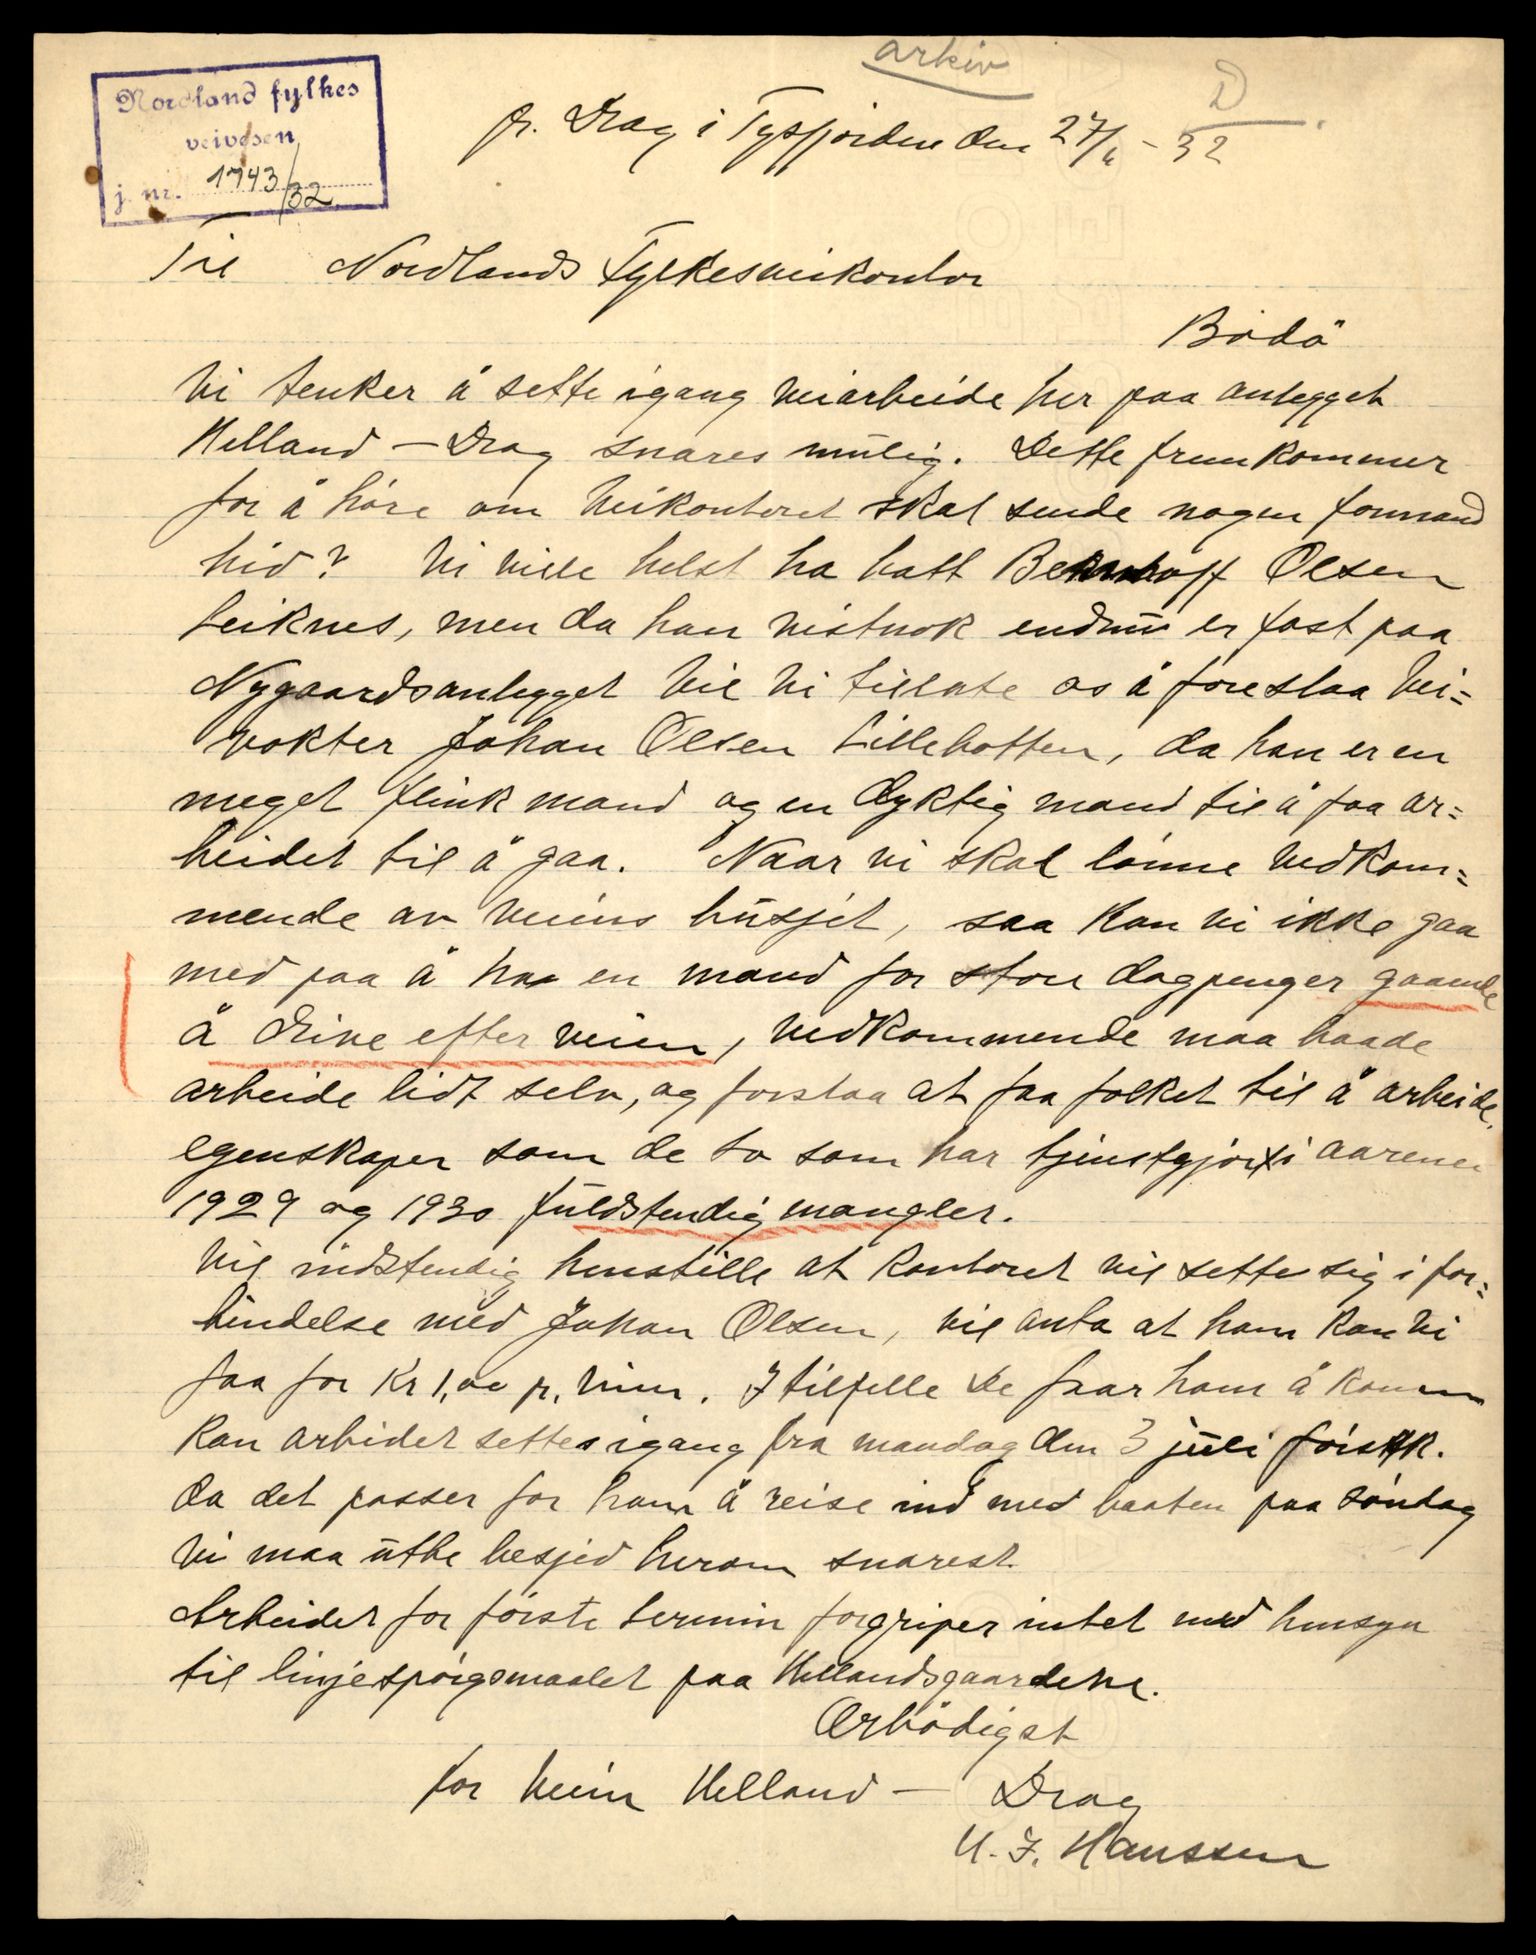 arkiv
D
Nordland fylkes
veivesen
j. nr. 1743/32
p. Drag i Tysfjorden den 27/6 - 32
Til Nordlands Fylkesveikontor
Bodö
Vi tenker å sette igang veiarbeide her paa anlegget
Helland — Drag snares mulig. Dette fremkommer
for å höre om Veikontoret skal sende nogen formand
hid? Vi vilde helst ha hatt Bernhoff Olsen
Leiknes, men da han vistnok endnu er fast paa
Nygaardsanlegget vil vi tillate os å foreslaa Vei=
vokter Johan Olsen Lillebotten, da han er en
meget flink mand og en dyktig mand til å faa ar=
beidet til å gaa. Naar vi skal lönne vedkom=
mende av veiens busjet, saa kan vi ikke gaa
med paa å haa en mand for store dagpenger gaaende
å drive efter veien, vedkommende maa baade
arbeide lidt selv, og forstaa at faa folket til å arbeide,
egenskaper som de to som har tjenstgjort i aarene
1929 og 1930 fuldstendig mangler.
Vil indstendig henstille at kontoret vil sette sig i for=
bindelse med Johan Olsen, vil anta at ham kan vi
faa for Kr 1,00 p. time. I tilfelle De faar ham å komme
kan arbeidet settes igang fra mandag den 3 juli förstk.
da det passer for ham å reise ind med baaten paa söndag
Vi maa utbe besjed herom snarest.
Arbeidet for förste termin forgriper intet med hensyn
til linjespörgsmaalet paa Hellandsgaardene.
Ærbödigst
for Veien Helland — Drag
H. J. Hanssen